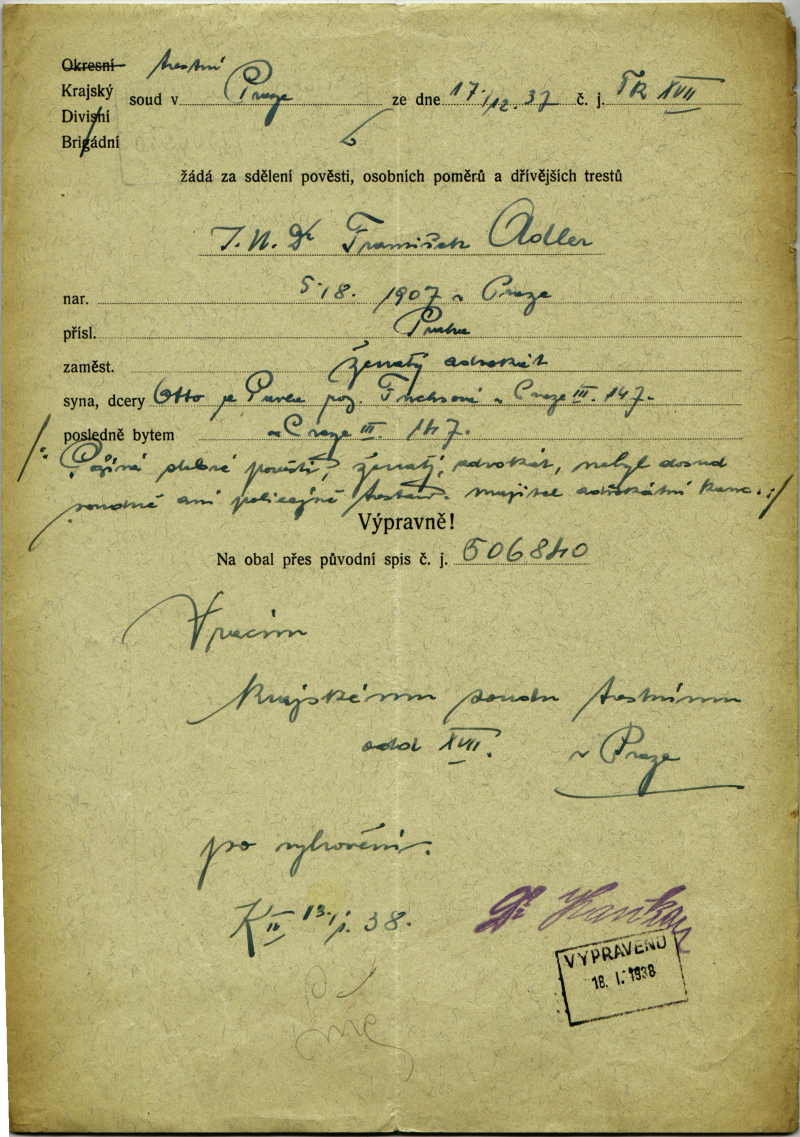 Okresní trestní
Krajský soud v Praze ze dne 17./12. 37 č. j. Tk XVII
Divisní
Brigádní
žádá za sdělení pověsti, osobních poměrů a dřívějších trestů
J. U. Dr František Adler
nar. 5./8. 1907 v Praze
přísl. Praha
zaměst. ženatý advokát
syna, dcery Otto a Pavla roz. Fuchsová v Praze III. 147.
posledně bytem v Praze III. 147.
Požívá dobré pověsti, ženatý, advokát, nebyl dosud
soudně ani policejně trestán. majitel advokátní kanc.
Výpravně!
Na obal přes původní spis č. j. 506840
Vracím
krajskému soudu trestnímu
odd XVII. v Praze
po vyhovění.
K II 13./1. 38.
Dr
VYPRAVENO
18. I. 1938